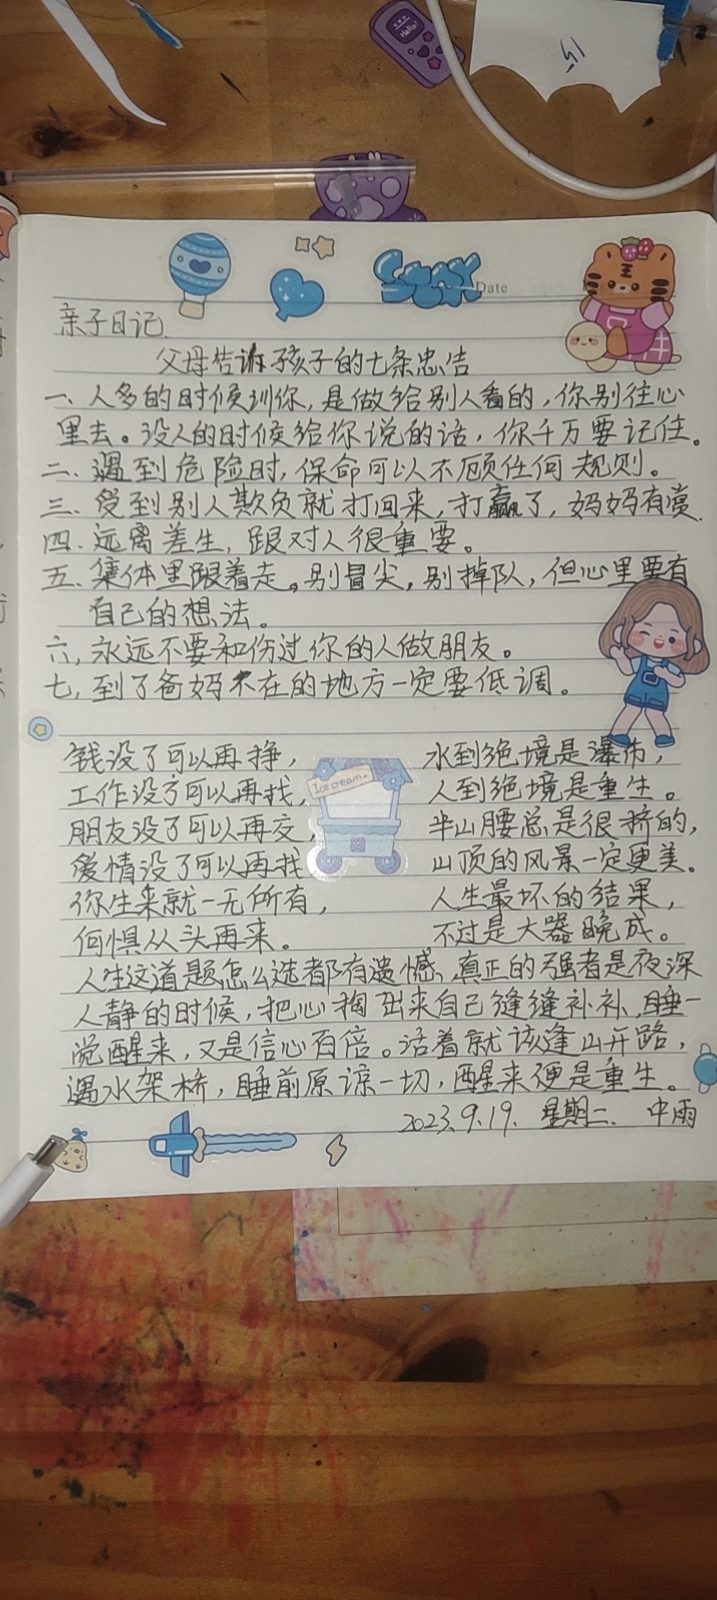 Hello!
15
STAY
Date
亲子日记.
父母告诉孩子的七条忠告
一、人多的时候训你,是做给别人看的,你别往心
里去。没人的时候给你说的话,你千万要记住。
二、遇到危险时,保命可以不顾任何规则。
三、受到别人欺负就打回来,打赢了,妈妈有赏.
四.远离差生,跟对人很重要。
五、集体里跟着走。别冒尖,别掉队,但心里要有
自己的想法。
六,永远不要和伤过你的人做朋友。
七,到了爸妈不在的地方一定要低调。
钱没了可以再挣,
工作没了可以再找,
朋友没了可以再交,
爱情没了可以再找
你生来就一无所有,
何惧从头再来。
Ice cream
水到绝境是瀑布,
人到绝境是重生。
半山腰总是很挤的,
山顶的风景一定更美。
人生最坏的结果,
不过是大器晚成。
人生这道题怎么选都有遗憾,真正的强者是夜深
人静的时候,把心掏出来自己缝缝补补,睡一
觉醒来,又是信心百倍。活着就该逢山开路,
遇水架桥,睡前原谅一切,醒来便是重生。
2023.9.19. 星期二. 中雨